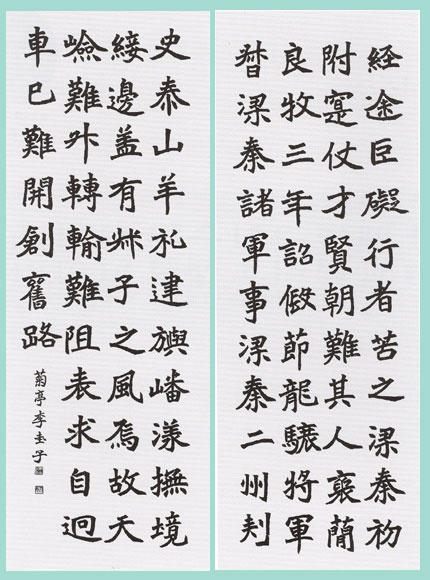 経途巨礙行者苦之梁秦初
附寔仗才賢朝難其人襃簡
良牧三年詔假節龍驤將軍
督梁秦諸軍事梁秦二州刾
史泰山羊祉建旟嶓漾撫境
綏邊盖有叔子之風焉故天
嶮難升轉輸難阻表求自迴
車巳難開創舊路
菊亭李子